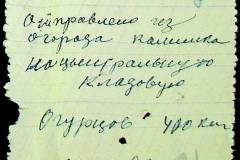 Отправлено из
огорода
на центральную
кладовую
Огурцов 400 кг